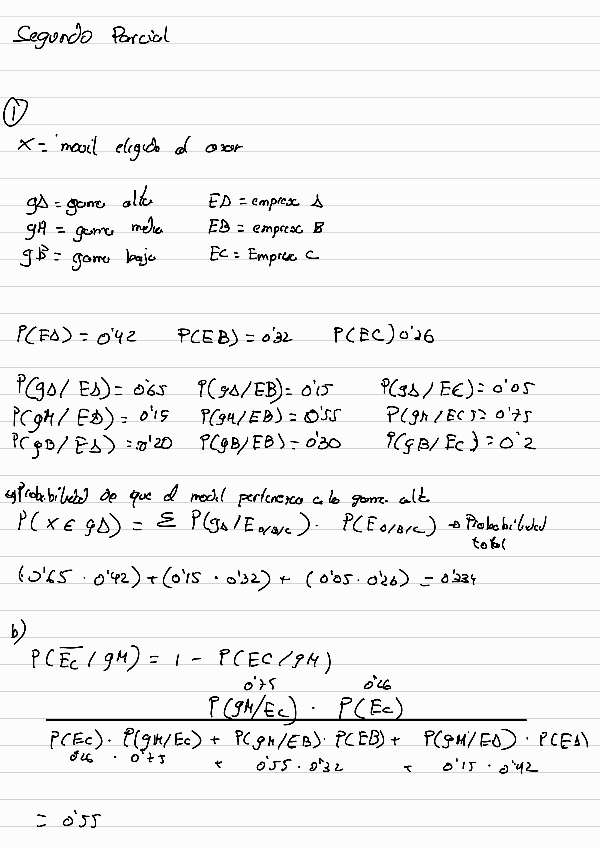 Segundo Parcial
①
X = movil elegido al azar
gA = gama alta EA = empresa A
gM = gama media EB = empresa B
gB = gama baja EC = Empresa C
P(EA) = 0'42 P(EB) = 0'32 P(EC) 0'26
P(gA/EA) = 0'65 P(gA/EB) = 0'15 P(gA/EC) = 0'05
P(gM/EA) = 0'15 P(gM/EB) = 0'55 P(gM/EC) = 0'75
P(gB/EA) = 0'20 P(gB/EB) = 0'30 P(gB/EC) = 0'2
a) Probabilidad de que el movil pertenezca a la gama alta
P(X ∈ gA) = Σ P(gA/E A/B/C) · P(E A/B/C) → Probabilidad
total
(0'65 · 0'42) + (0'15 · 0'32) + (0'05 · 0'26) = 0'334
b)
P(E̅c̅/gM) = 1 - P(EC/gM)
0'75 0'26
P(gM/Ec) · P(Ec)
P(Ec) · P(gM/Ec) + P(gM/EB) · P(EB) + P(gM/EA) · P(EA)
0'26 · 0'75 + 0'55 · 0'32 + 0'15 · 0'42
= 0'55